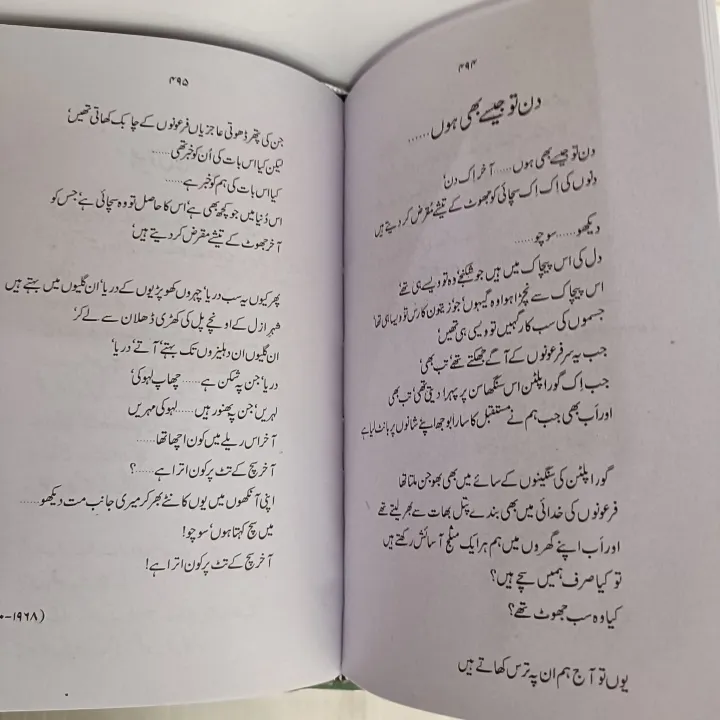 ۴۹۴
دن تو جیسے بھی ہوں......
دن تو جیسے بھی ہوں...... آخر اک دن'
دنوں کی اک اک سچائی کو جھوٹ کے تیشے مقرض کر دیتے ہیں
دیکھو...... سوچو......
دل کی اس پیچاک میں ہیں جو شکنجے' وہ تو ویسے ہی تھے'
اس پیچاک سے نچڑا ہوا وہ گیہوں' جَو' زیتون کا رس تو ویسا ہی تھا'
جسموں کی سب کارگہیں تو ویسی ہی تھیں'
جب یہ سر فرعونوں کے آگے جھکتے تھے' تب بھی'
جب اِک گورا پلٹن اس سنگھاسن پر پہرا دیتی تھی' تب بھی
اور اَب بھی جب ہم نے مستقبل کا سارا بوجھ اپنے شانوں پر بانٹ لیا ہے
گورا پلٹن کی سنگینوں کے سائے میں بھی بھوجن ملتا تھا
فرعونوں کی خدائی میں بھی بندے پتل بھات سے بھر لیتے تھے
اور اَب اپنے گھروں میں ہم ہر ایک منلّج آسائش رکھتے ہیں
تو کیا صرف ہمیں سچے ہیں؟
کیا وہ سب جھوٹ تھے؟
یوں تو آج ہم ان پہ ترس کھاتے ہیں
۴۹۵
جن کی پتھر ڈھوتی عاجزیاں فرعونوں کے چابک کھاتی تھیں'
لیکن کیا اس بات کی اُن کو خبر تھی......
کیا اس بات کی ہم کو خبر ہے......
اس دُنیا میں جو کچھ بھی ہے' اس کا حاصل تو وہ سچائی ہے' جس کو
آخر جھوٹ کے تیشے مقرض کر دیتے ہیں'
پھر کیوں یہ سب دریا' چہروں کھوپڑیوں کے دریا' ان گلیوں میں بہتے ہیں
شہرِ ازل کے اونچے پل کی کھڑی ڈھلان سے لے کر'
ان گلیوں ان دہلیزوں تک بہتے' آتے' دریا'
دریا' جن پہ شکن ہے...... چھاپ لہو کی'
لہریں' جن پہ بھنور ہیں...... لہو کی مہریں
آخر اس ریلے میں کون اچھا تھا......
آخر سچ کے تٹ پر کون اترا ہے......؟
اپنی آنکھوں میں یوں کانٹے بھر کر میری جانب مت دیکھو......
میں سچ کہتا ہوں' سوچو!
آخر سچ کے تٹ پر کون اترا ہے!
-۱۹۶۸)